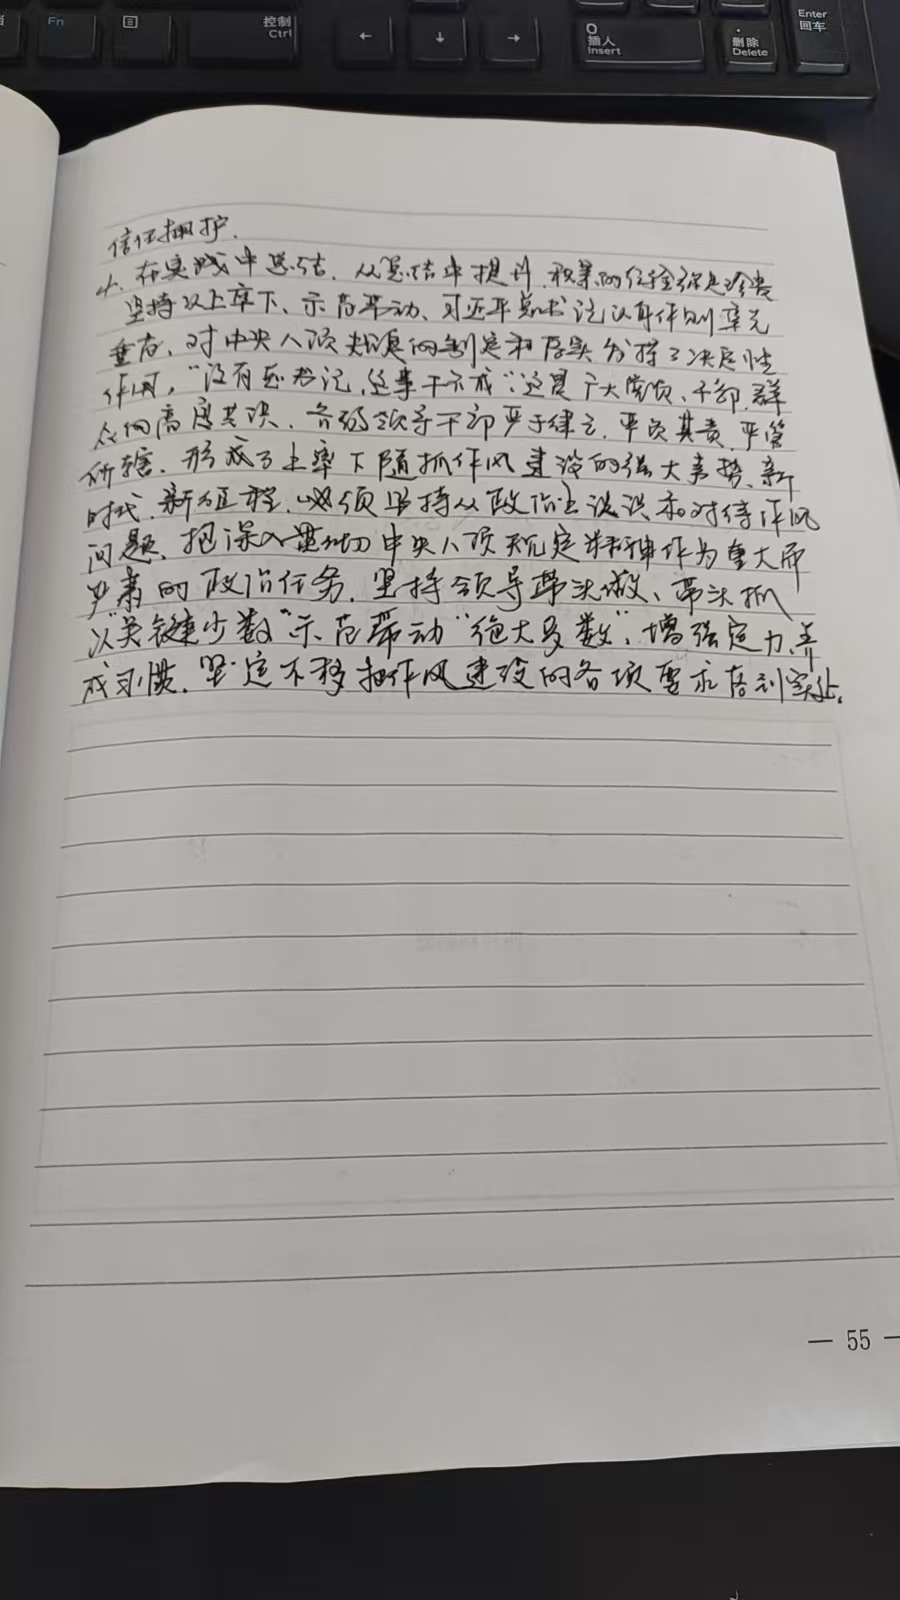 Fn
控制
Ctrl
←
↓
→
0
插入
Insert
.
删除
Delete
Enter
回车
信任拥护.
4. 在实践中总结、从总结中提升、积累的经验弥足珍贵
坚持以上率下、示范带动、习近平总书记以身作则率先
垂范、对中央八项规定的制定和落实发挥了决定性
作用,“没有总书记,这事干不成”这是广大党员、干部、群
众的高度共识、各级领导干部严于律己、严负其责、严管
所辖、形成了上率下随抓作风建设的强大声势、新
时代、新征程、必须坚持从政治上认识和对待作风
问题、把深入贯彻中央八项规定精神作为重大而
严肃的政治任务、坚持领导带头做、带头抓
以“关键少数”示范带动“绝大多数”、增强定力、养
成习惯、坚定不移把作风建设的各项要求落到实处。
— 55 —